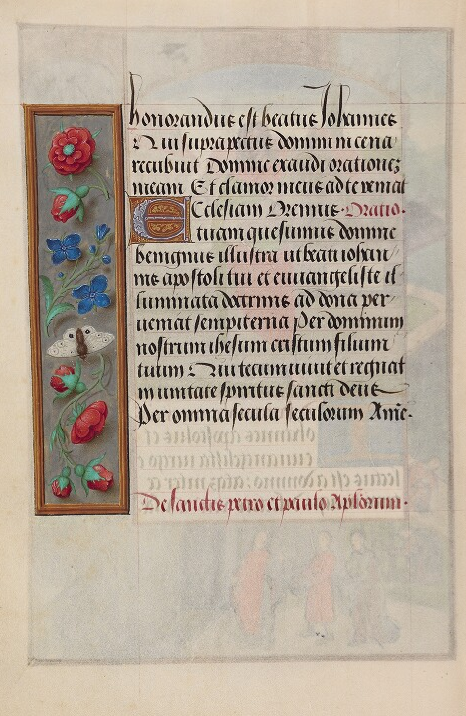 honorandus est beatus Iohannes
Qui supra pectus domini in cena
recubuit Domine exaudi orationem
meam Et clamor meus ad te veniat
Ecclesiam Oremus Oratio.
tuam quesumus domine
benignus illustra ut beati iohan
nis apostoli tui et euuangeliste il
luminata doctrinis ad dona per
ueniat sempiterna Per dominum
nostrum ihesum cristum filium
tuum Qui tecum viuit et regnat
in unitate spiritus sancti deus
Per omnia secula seculorum Ame.
De sanctis petro et paulo Apostolorum.